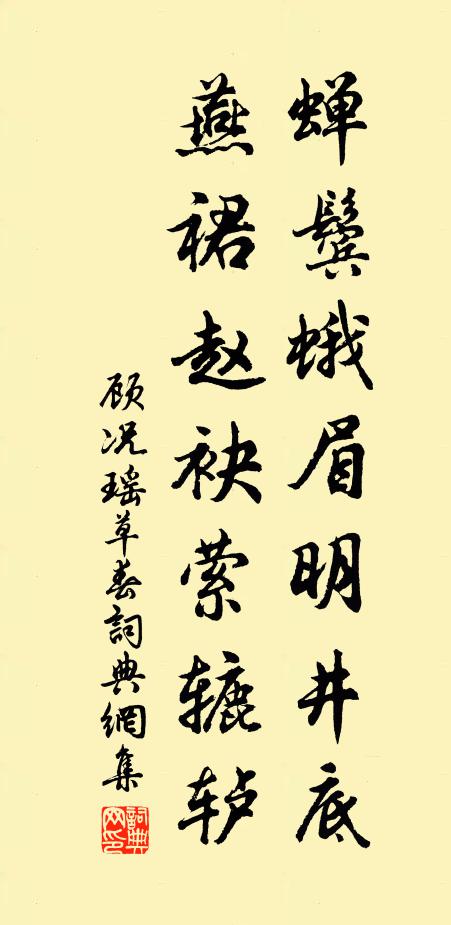 蝉鬓蛾眉明井底
燕裙赵袂萦辘轳
顾况瑶草春詞典網集
詞典网印